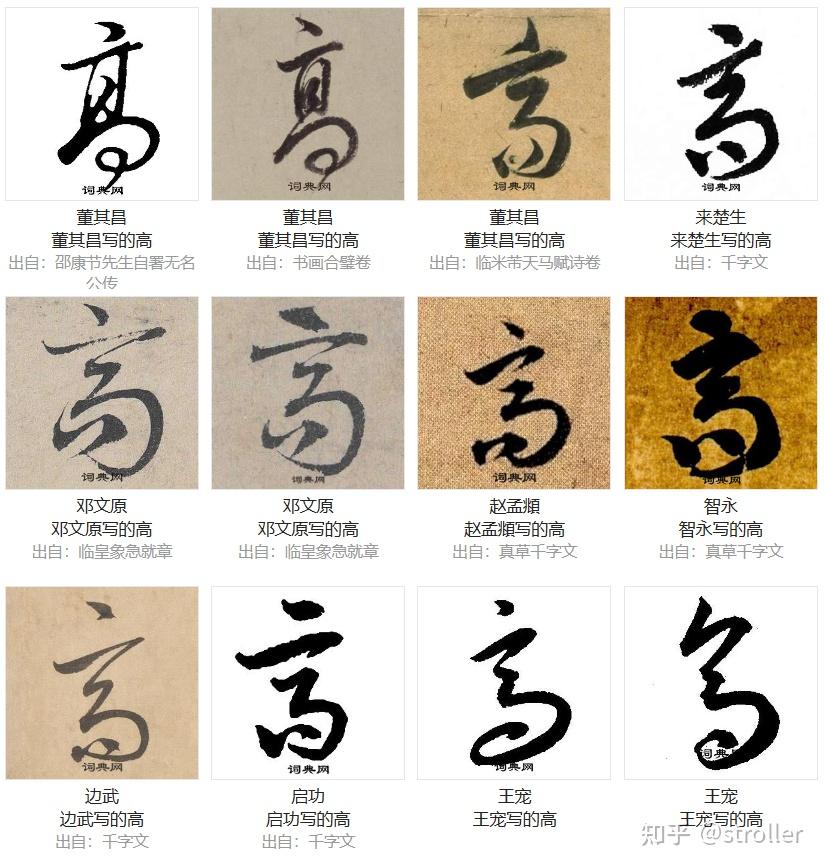 高 高 高 高
词典网 词典网 词典网 词典网
董其昌 董其昌 董其昌 来楚生
董其昌写的高 董其昌写的高 董其昌写的高 来楚生写的高
出自：邵康节先生自署无名公传 出自：书画合璧卷 出自：临米芾天马赋诗卷 出自：千字文
高 高 高 高
词典网 词典网 词典网 词典网
邓文原 邓文原 赵孟頫 智永
邓文原写的高 邓文原写的高 赵孟頫写的高 智永写的高
出自：临皇象急就章 出自：临皇象急就章 出自：真草千字文 出自：真草千字文
高 高 高 高
词典网 词典网 词典网 词典网
边武 启功 王宠 王宠
边武写的高 启功写的高 王宠写的高 王宠写的高
出自：千字文 出自：千字文
知乎 @stroller